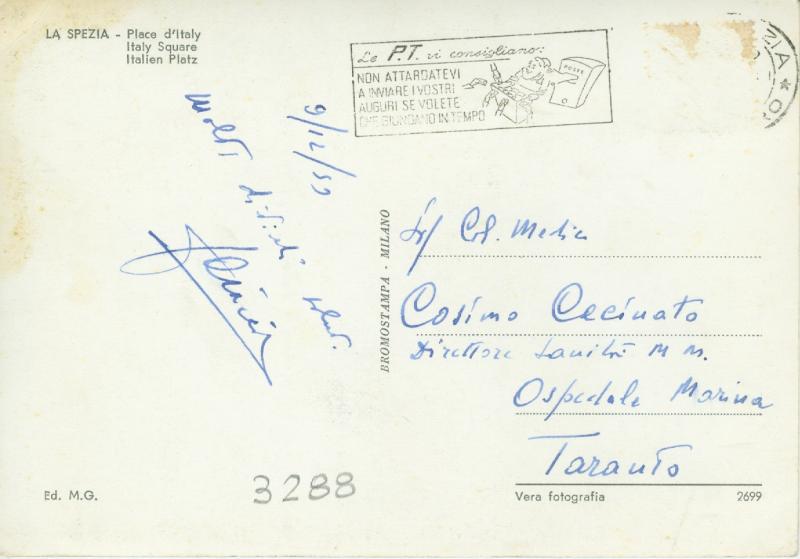 LA SPEZIA - Place d'Italy
Italy Square
Italien Platz
Le P.T. vi consigliano:
NON ATTARDATEVI
A INVIARE I VOSTRI
AUGURI SE VOLETE
CHE GIUNGANO IN TEMPO
POSTE
ZIA * O
9/12/59
Molti distinti saluti.
BROMOSTAMPA - MILANO
Col. Medico
Cosimo Cecinato
Direttore Sanità M M.
Ospedale Marina
Taranto
Ed. M.G.
3288
Vera fotografia 2699